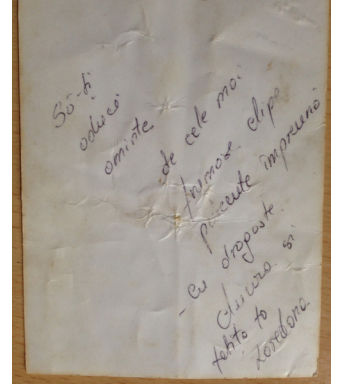 Să-ți
aduci
aminte
de cele mai
frumoase clipe
petrecute împreună
- Cu dragoste
și
fetița ta
Loredana